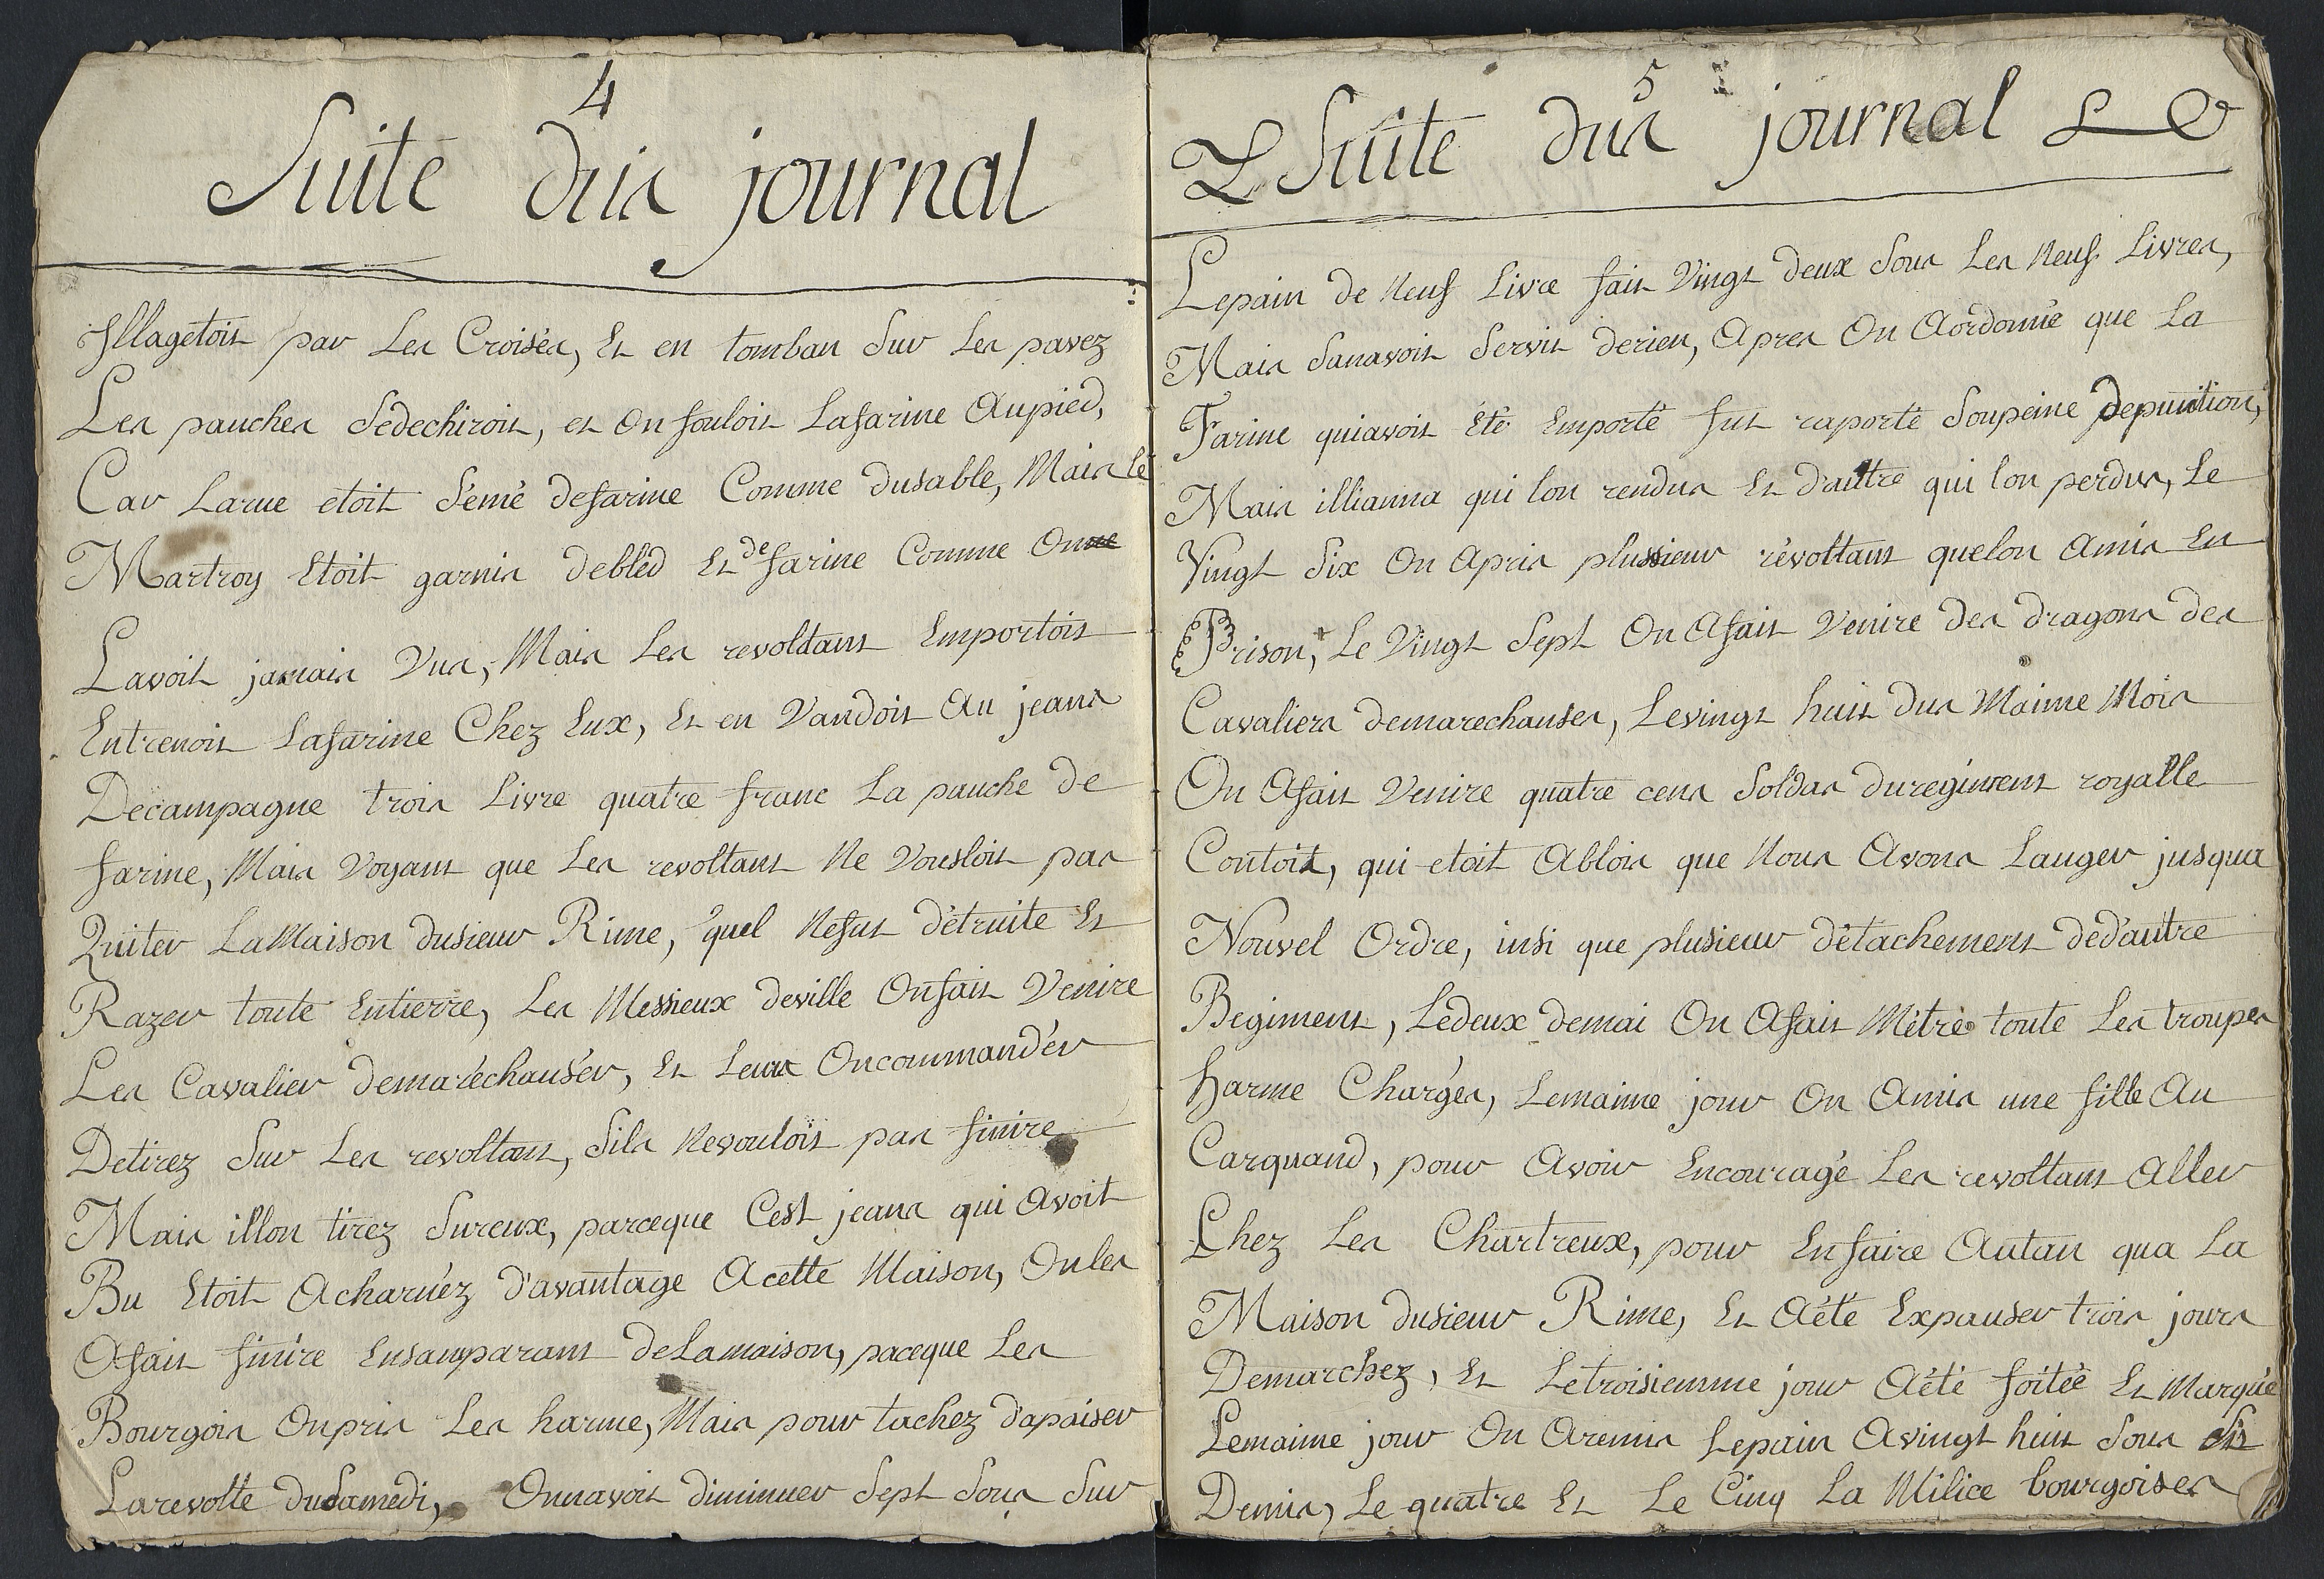 4
Suite dus journal
Illagetoit par Les Croisés, Et en tomban Sur Les pavez
Les pauches Sedechiroit, et On fouloit Lafarine Aupied,
Car Larue etoit Sémé defarine Comme dusable, Mais Le
Martroy Etoit garnis debled Et de farine Comme On ne
Lavoit jamais Vus, Mais Les revoltans Emportoit
Entrenoit Lafarine Chez Eux, Et en Vandoit Au jeans
Decampagne trois Livre quatre franc La pauche de
farine, Mais Voyant que Les revoltans Ne Vousloit pas
Quiter LaMaison dusieur Rime, quel Nefut détruite Et
Razer toute Entierre, Les Messieux deville Onfait Venire
Les Cavalier demaréchausér, Et Leur Oncommandér
Detirez Sur Les revoltans, Sils Nevouloit pas finire
Mais illon tirez Sureux, parceque Cest jeans qui Avoit
Bu Etoit Acharnéz d'avantage Acette Maison, Onles
Afait finire Ensamparant deLamaison, paceque Les
Bourgois Onpris Les harme, Mais pour tachez d'apaiser
Larevolte duSamedi, Onnavoit diminuer Sept Sous Sur
5
Suite dus journal
Lepain de Neuf Livre fait Vingt deux Sous Les Neuf Livres,
Mais Sanavoit Servit derien, Apres On Aordonné que La
Farine quiavoit Eté Emporté fut raporté Soupeine depunition,
Mais illianna qui lon rendus Et d'autre qui lon perdus, Le
Vingt Six On Apris plussieur révoltant quelon Amis En
Prison, Le Vingt Sept On Afait Venire des dragons des
Cavaliers demarechauses, Levingt huit dus Maime Mois
On Afait Venire quatre cens Soldas duregiment royalle
Contoit, qui etoit Ablois que Nous Avons Lauger jusqua
Nouvel Ordre, insi que plusieur détachement déd'autre
Regiment, Ledeux demai On Afait Métre toute Les troupes
harme Charges, Lemaime jour On Amis une fille Au
Carquand, pour Avoir Encouragé Les revoltans Aller
Chez Les Chartreux, pour Enfaire Autan qua La
Maison dusieur Rime, Et Aété Expauser trois jours
Demarchez, Et Letroisiemme jour Aété foitée Et Marqué
Lemaime jour On Aremis Lepain Avingt huit Sous Et
Demis, Le quatre Et Le Cinq La Milice bourgoises